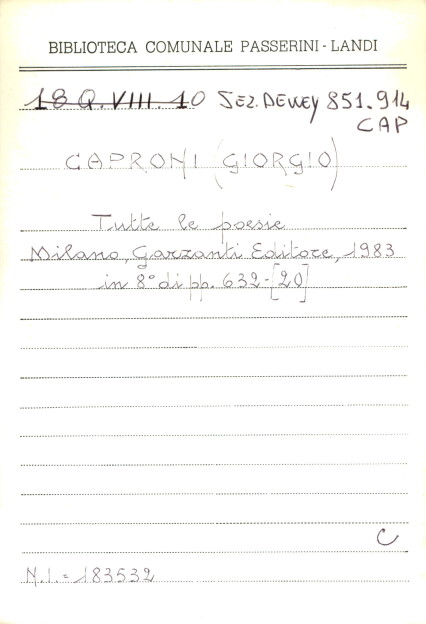 BIBLIOTECA COMUNALE PASSERINI - LANDI
18 Q. VIII. 10 SEZ. DEWEY 851.914
CAP
CAPRONI (GIORGIO)
Tutte le poesie
Milano, Garzanti Editore, 1983
in 8° di pp. 632-[20]
C
N.I. = 183532